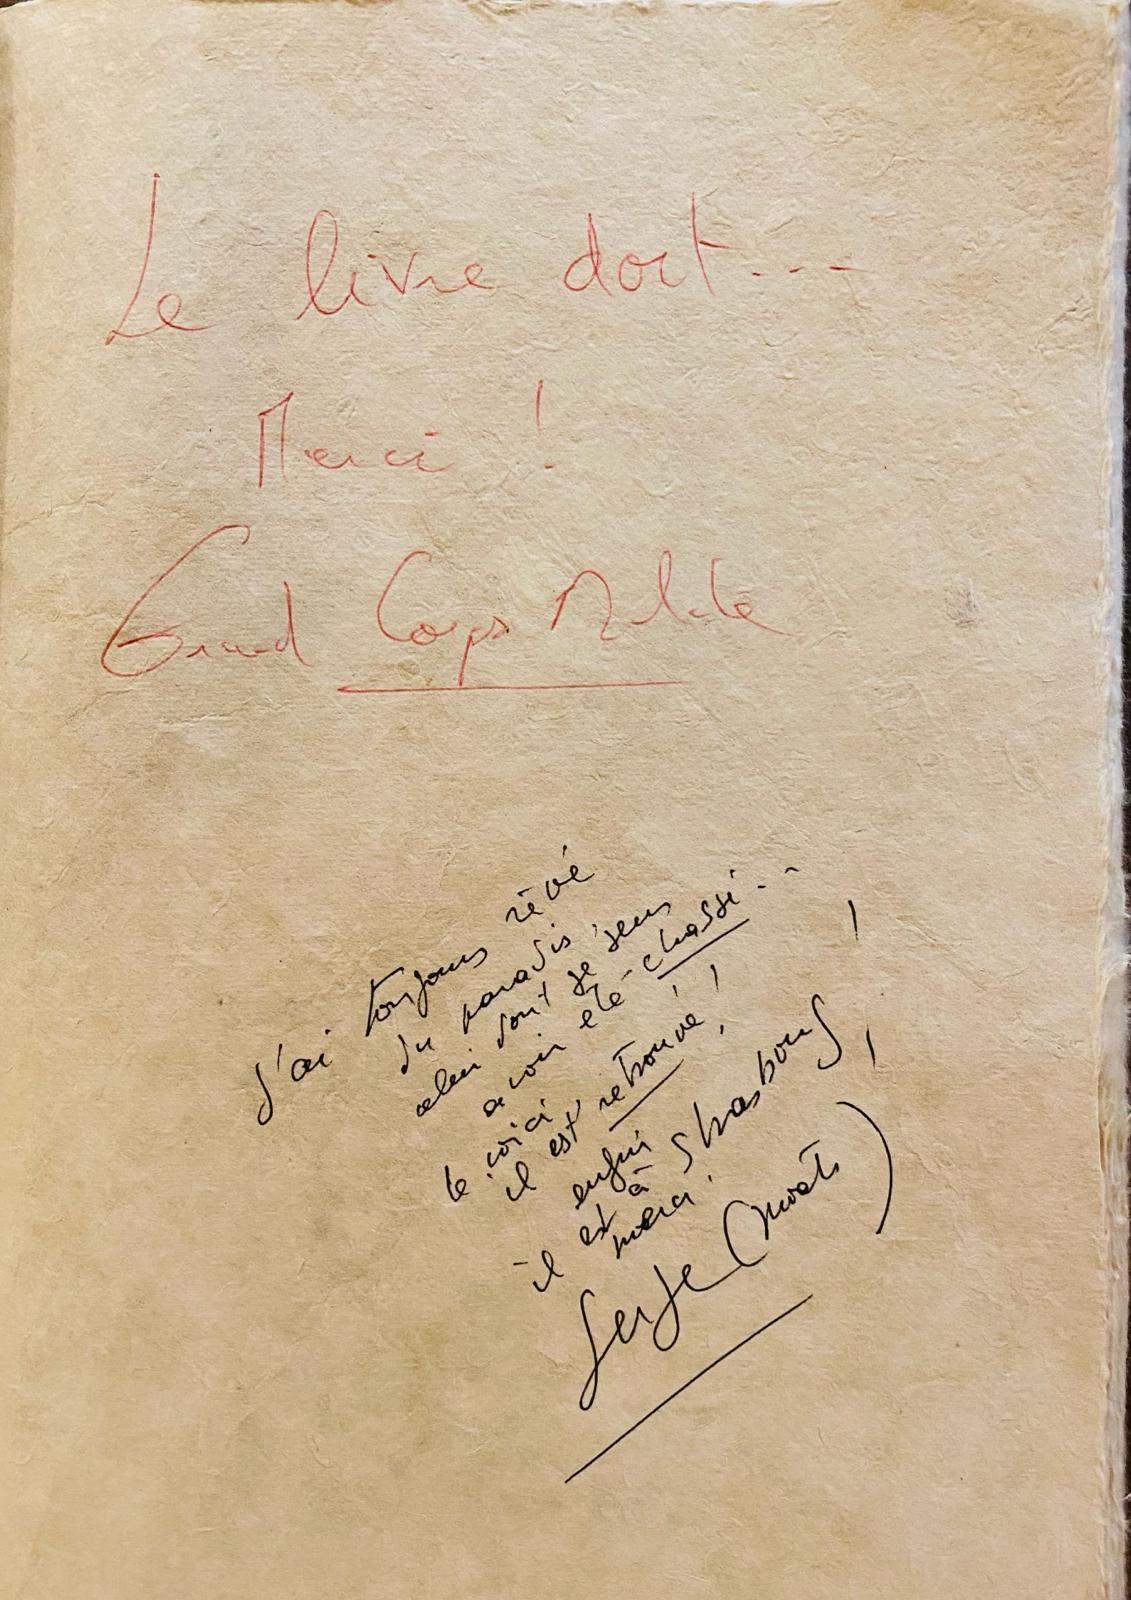 Le livre dort...
Merci !
Grand Corps Malade
J'ai toujours rêvé
du paradis,
celui dont je sens
avoir été chassé...
le voici !
il est retrouvé !
enfin !
il est à Strasbourg !
merci !
Serge (Moati)